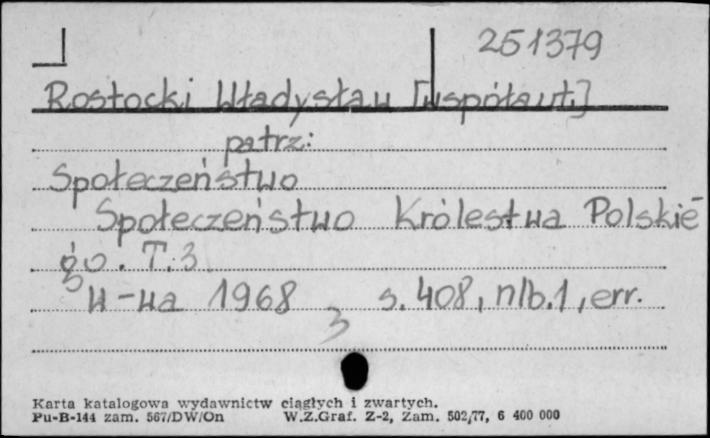 251379
Rostocki Władysław [współaut.]
patrz:
Społeczeństwo
Społeczeństwo Królestwa Polskie-
go. T.3
W-wa 1968 s. 408, nlb.1, err.
3
Karta katalogowa wydawnictw ciągłych i zwartych.
Pu-B-144 zam. 567/DW/On W.Z.Graf. Z-2, Zam. 502/77, 6 400 000